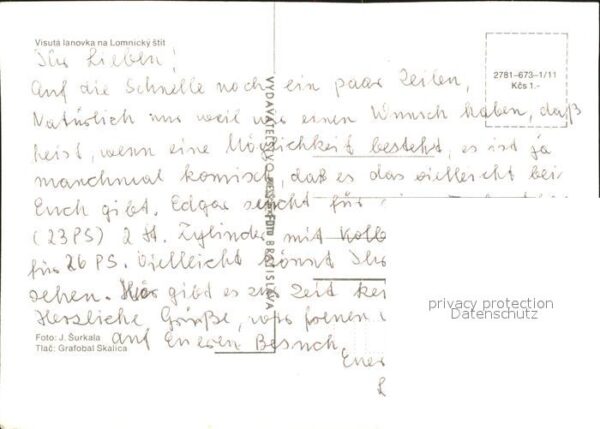 Visutá lanovka na Lomnický štít
Ihr Lieben!
Auf die Schnelle noch ein paar Zeilen,
Natürlich nur weil wir einen Wunsch haben, daß
heist, wenn eine Möglichkeit besteht, es ist ja
manchmal komisch, daß es das vielleicht bei
Euch gibt. Edgar sucht für
(23PS) 2 St. Zylinder mit Kolb
für 26 PS. Vielleicht könnt Ihr
sehen. Hier gibt es zur Zeit kei
Herzliche Grüße, wir freuen
auf Eueren Besuch.
Euer
2781-673-1/11
Kčs 1.-
VYDAVATEĽSTVO
BRATISLAVA
Foto: J. Šurkala
Tlač: Grafobal Skalica
privacy protection
Datenschutz